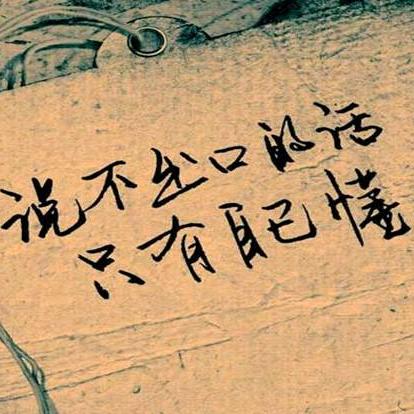 说不出口的话
只有自己懂